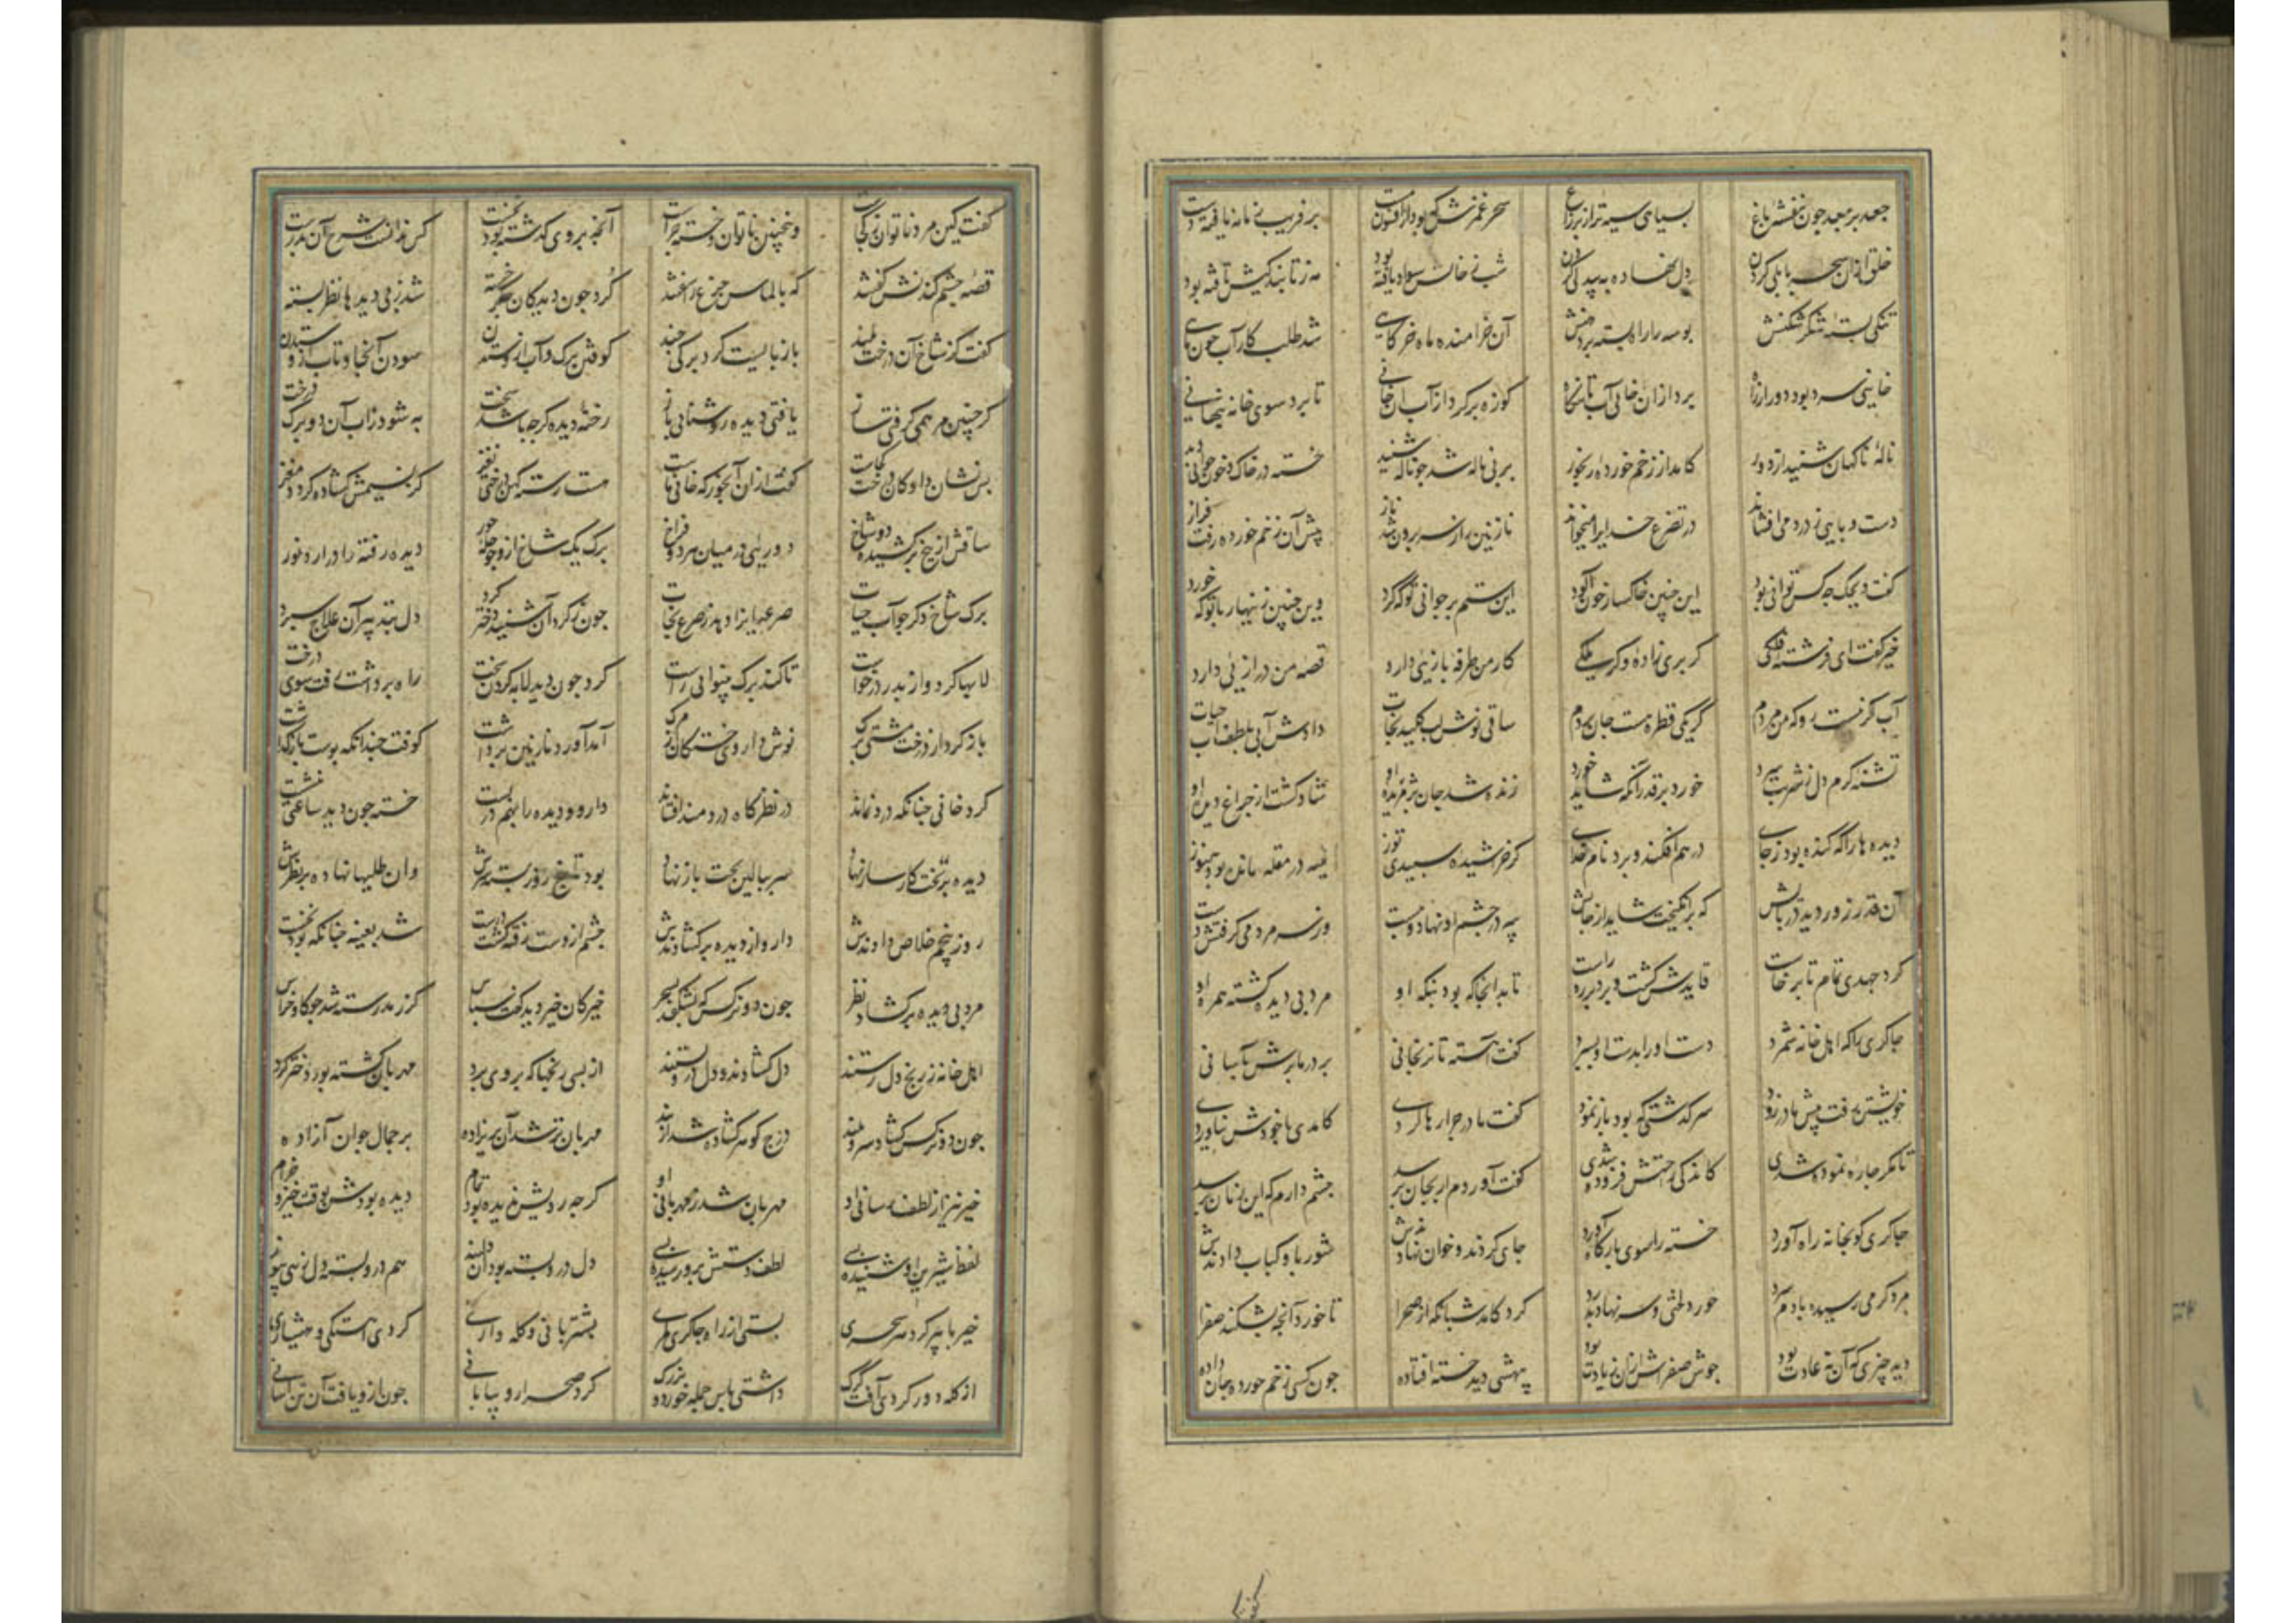 جعد بر جعد چون بنفشه باغ بسیاهی سیه تر از پر زاغ سحر غمزش که بود از افسون مست بر فریب زمانه یافته دست
خلق از آن سحر بابلی کردن دل نهاده به بیدلی کردن شب ز خالش سواد یافته بود مه ز تابندگیش تافته بود
تنگی بسته شکر شکنش بوسه را راه بسته بر دهنش آن خرامنده ماه خرگاهی شد طلب کار آب چون ماهی
خانیی سرد بود دور از راه بود از آن خانی آب آنگاه کوزه پر کرد از آب آن خانی تا برد سوی خانه پنهانی
ناله ناگهان شنید از دور کامد از زخم خورده رنجور بر پی ناله شد چو ناله شنید خسته در خاک و خون جوانی دید
دست و پایی ز درد می افشاند در تضرع خدایرا میخواند نازنین را ز سر برون شد ناز پیش آن زخم خورده رفت فراز
گفت ویحک چه کس توانی بود این چنین خاکسار خون آلود این ستم بر جوانی تو که کرد وین چنین زینهار با تو که خورد
خیر گفت ای فرشته فلکی گر پری زاده و گر ملکی کار من طرفه بازیی دارد قصه من درازیی دارد
آب گر نیست رو که من مردم گر یکی قطره هست جان بردم ساقی نوش لب کلید نجات دادش آبی بلطف آب حیات
تشنه گرم دل ز شربت سرد خورد بر قدر آنکه شاید خورد زنده شد جان پژمریده او شاد گشت از چراغ دیده او
دیده ها را که کنده بود ز جای در هم افکند و برد نام خدای گر خراشیده شد سپیدی توز پیه در مقله مانده بود هنوز
آن قدر زور دید در پایش که برانگیخت شاید از جایش پیه در چشم او نهاد و ببست وز سر مردمی گرفتش دست
کرد جهدی تمام تا برخاست قایدش گشت و برد بر ره راست تا بدانجا که بود بنگه او مرد بی دیده گشته همره او
چاکری را که اهل خانه شمرد دست او را بدست او بسپرد گفت آهسته تا نرنجانی بر در ما برش بآسانی
خویشتن رفت پیش مادر زود سرگذشتی که بود باز نمود گفت مادر چرا رها کردی کامدی با خودش نیاوردی
تا مگر چاره نموده شدی کاندکی راحتش فزوده شدی گفت آوردم ار بجان برسد چشم دارم که این زمان برسد
چاکری کو بخانه راه آورد خسته را سوی بارگاه آورد جای کردند و خوان نهادندش شوربا و کباب دادندش
مرد گرمی رسیده با دم سرد خورد لختی و سر نهاد بدرد کرد کامد شبانگه از صحرا تا خورد آنچه بشکند صفرا
دید چیزی که آن نه عادت بود جوش صفراش از آن زیادت بود بیهشی دید خسته افتاده چون کسی زخم خورده جان داده
گفت کین مرد ناتوان ز کجاست و اینچنین ناتوان و خسته چراست آنچه بر وی گذشته بود نخست کس ندانست شرح آن بدرست
قصه چشم کندنش گفتند که بالماس جزع را سفتند کرد چون دید کان جگر خسته شد ز بی دیدها نظر بسته
گفت کز شاخ آن درخت بلند باز بایست کرد برگی چند کوفتن برگ و آب ازو ستدن سودن آنجا و تاب ازو ستدن
گر چنین مرهمی گرفتی ساز یافتی دیده روشنایی باز رخنه دیده گرچه باشد سخت به شود زاب آن دو برگ درخت
پس نشان داد کان درخت کجاست گفت از آن آبخور که خانی ماست هست رسته کهن درختی نغز کز نسیمش گشاده گردد مغز
ساقش از بیخ برکشیده دو شاخ دوریی در میان هر دو فراخ برگ یک شاخ ازو چو حله حور دیده رفته را در آرد نور
برگ شاخ دگر چو آب حیات صرعیانرا دهد ز صرع نجات چون ز کرد آن شنید دختر کرد دل بتدبیر آن علاج سپرد
لابها کرد و از پدر درخواست تا کند برگ بینوایی راست کرد چون دید لابه کردن سخت راه برداشت رفت سوی درخت
باز کرد از درخت مشتی برگ نوش داروی خستگان ز مرگ آمد آورد نازنین برداشت کوفت چندانکه پوست باز گذاشت
کرد خانی چنانکه درد نماند در نظرگاه دردمند افشاند دارو و دیده را بهم در بست خسته چون دید ساعتی بنشست
دیده بر تخت کارساز نهاد سر ببالین تخت باز نهاد بود تا پنج روز بسته سرش وان طلیها نهاده بر نظرش
روز پنجم خلاص دادندش دارو از دیده برگشادندش چشم از دست رفته گشت درست شد بعینه چنانکه بود نخست
مرد بی دیده برگشاد نظر چون دو نرگس که بشکفد بسحر خیر کان خیر دید گفت سپاس کز رمد رسته شد چو گاو خراس
اهل خانه ز رنج دل رستند دل گشادند و دل در او بستند از بسی رنجها که بر وی برد مهربان گشته بود دختر کرد
چون دو نرگس گشاد سرو بلند درج گوهر گشاده شد از بند مهربان تر شد آن پریزاده بر جمال جوان آزاده
خیر نیز از لطف رسانی او مهربان شد ز مهربانی او گرچه رویش ندیده بود تمام دیده بودش بوقت خیز و خرام
لفظ شیرین او شنیده بسی لطف دستش برو رسیده بسی دل در و بسته بود آن دلبند هم در و بسته دل زهی پیوند
خیر با پیر کرد هر سحری بستی از راه چاکری کمری بشتربانی و گله داری کردی آهستگی و هشیاری
از گله دور کردی آفت گرگ داشتی پاس جمله خورد و بزرگ کرد صحرا رو بیابانی چون ازو یافت آن تن آسانی